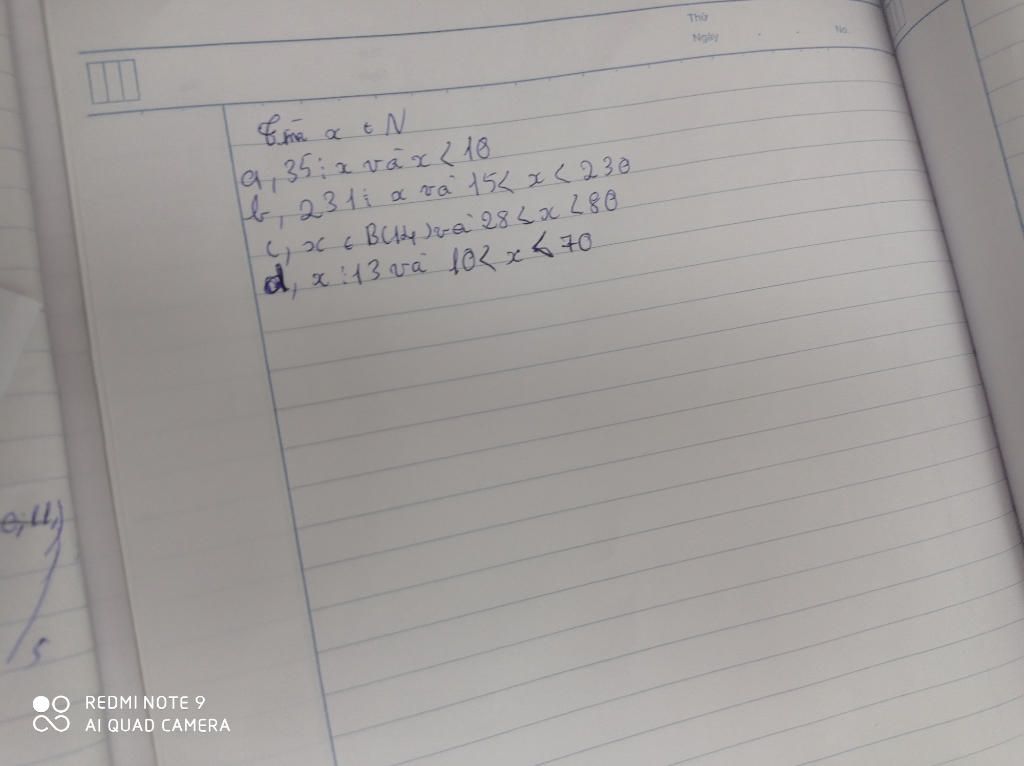 Thứ
Ngày . . No.
Tìm x ϵ N
a, 35 ⋮ x và x < 10
b, 231 ⋮ x và 15 < x < 230
c, x ϵ B(14) và 28 < x < 80
d, x ⋮ 13 và 10 < x < 70
5
REDMI NOTE 9
AI QUAD CAMERA